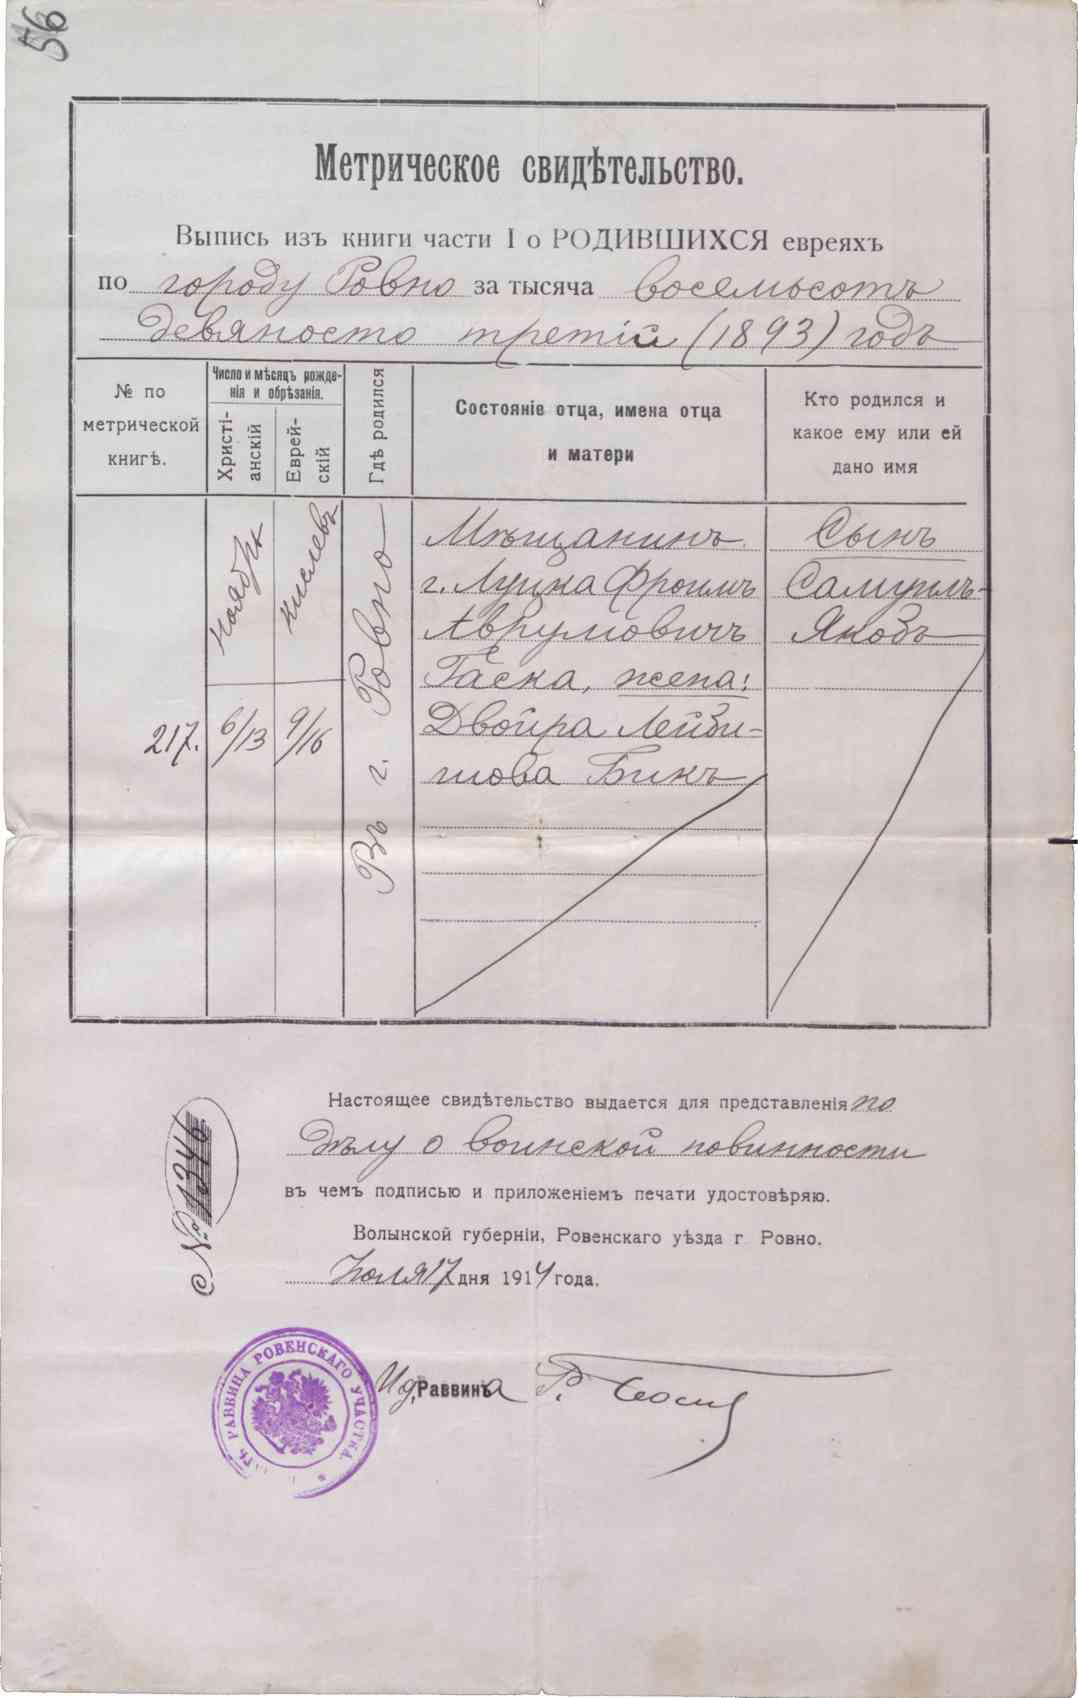 56
Метрическое свидѣтельство.
Выпись изъ книги части I о РОДИВШИХСЯ евреяхъ
по городу Ровно за тысяча восемьсотъ
девяносто третій (1893) годъ
№ по метрической книгѣ.
Число и мѣсяцъ рожденія и обрѣзанія.
Христіанскій
Еврейскій
Гдѣ родился
Состояніе отца, имена отца
и матери
Кто родился и
какое ему или ей
дано имя
217.
Ноябрь
6/13
Кислевъ
9/16
Въ г. Ровно
Мѣщанинъ
г. Луцка Фроимъ
Аврумовичъ
Гаска, жена:
Двойра Лейзи-
шова Бикъ
Сынъ
Самуилъ-
Якобъ
Настоящее свидѣтельство выдается для представленія по
дѣлу о воинской повинности
въ чемъ подписью и приложеніемъ печати удостовѣряю.
Волынской губерніи, Ровенскаго уѣзда г Ровно.
Іюля 17 дня 1914 года.
№ 1346
И д. Раввина
РАВВИНА РОВЕНСКАГО УЧАСТКА